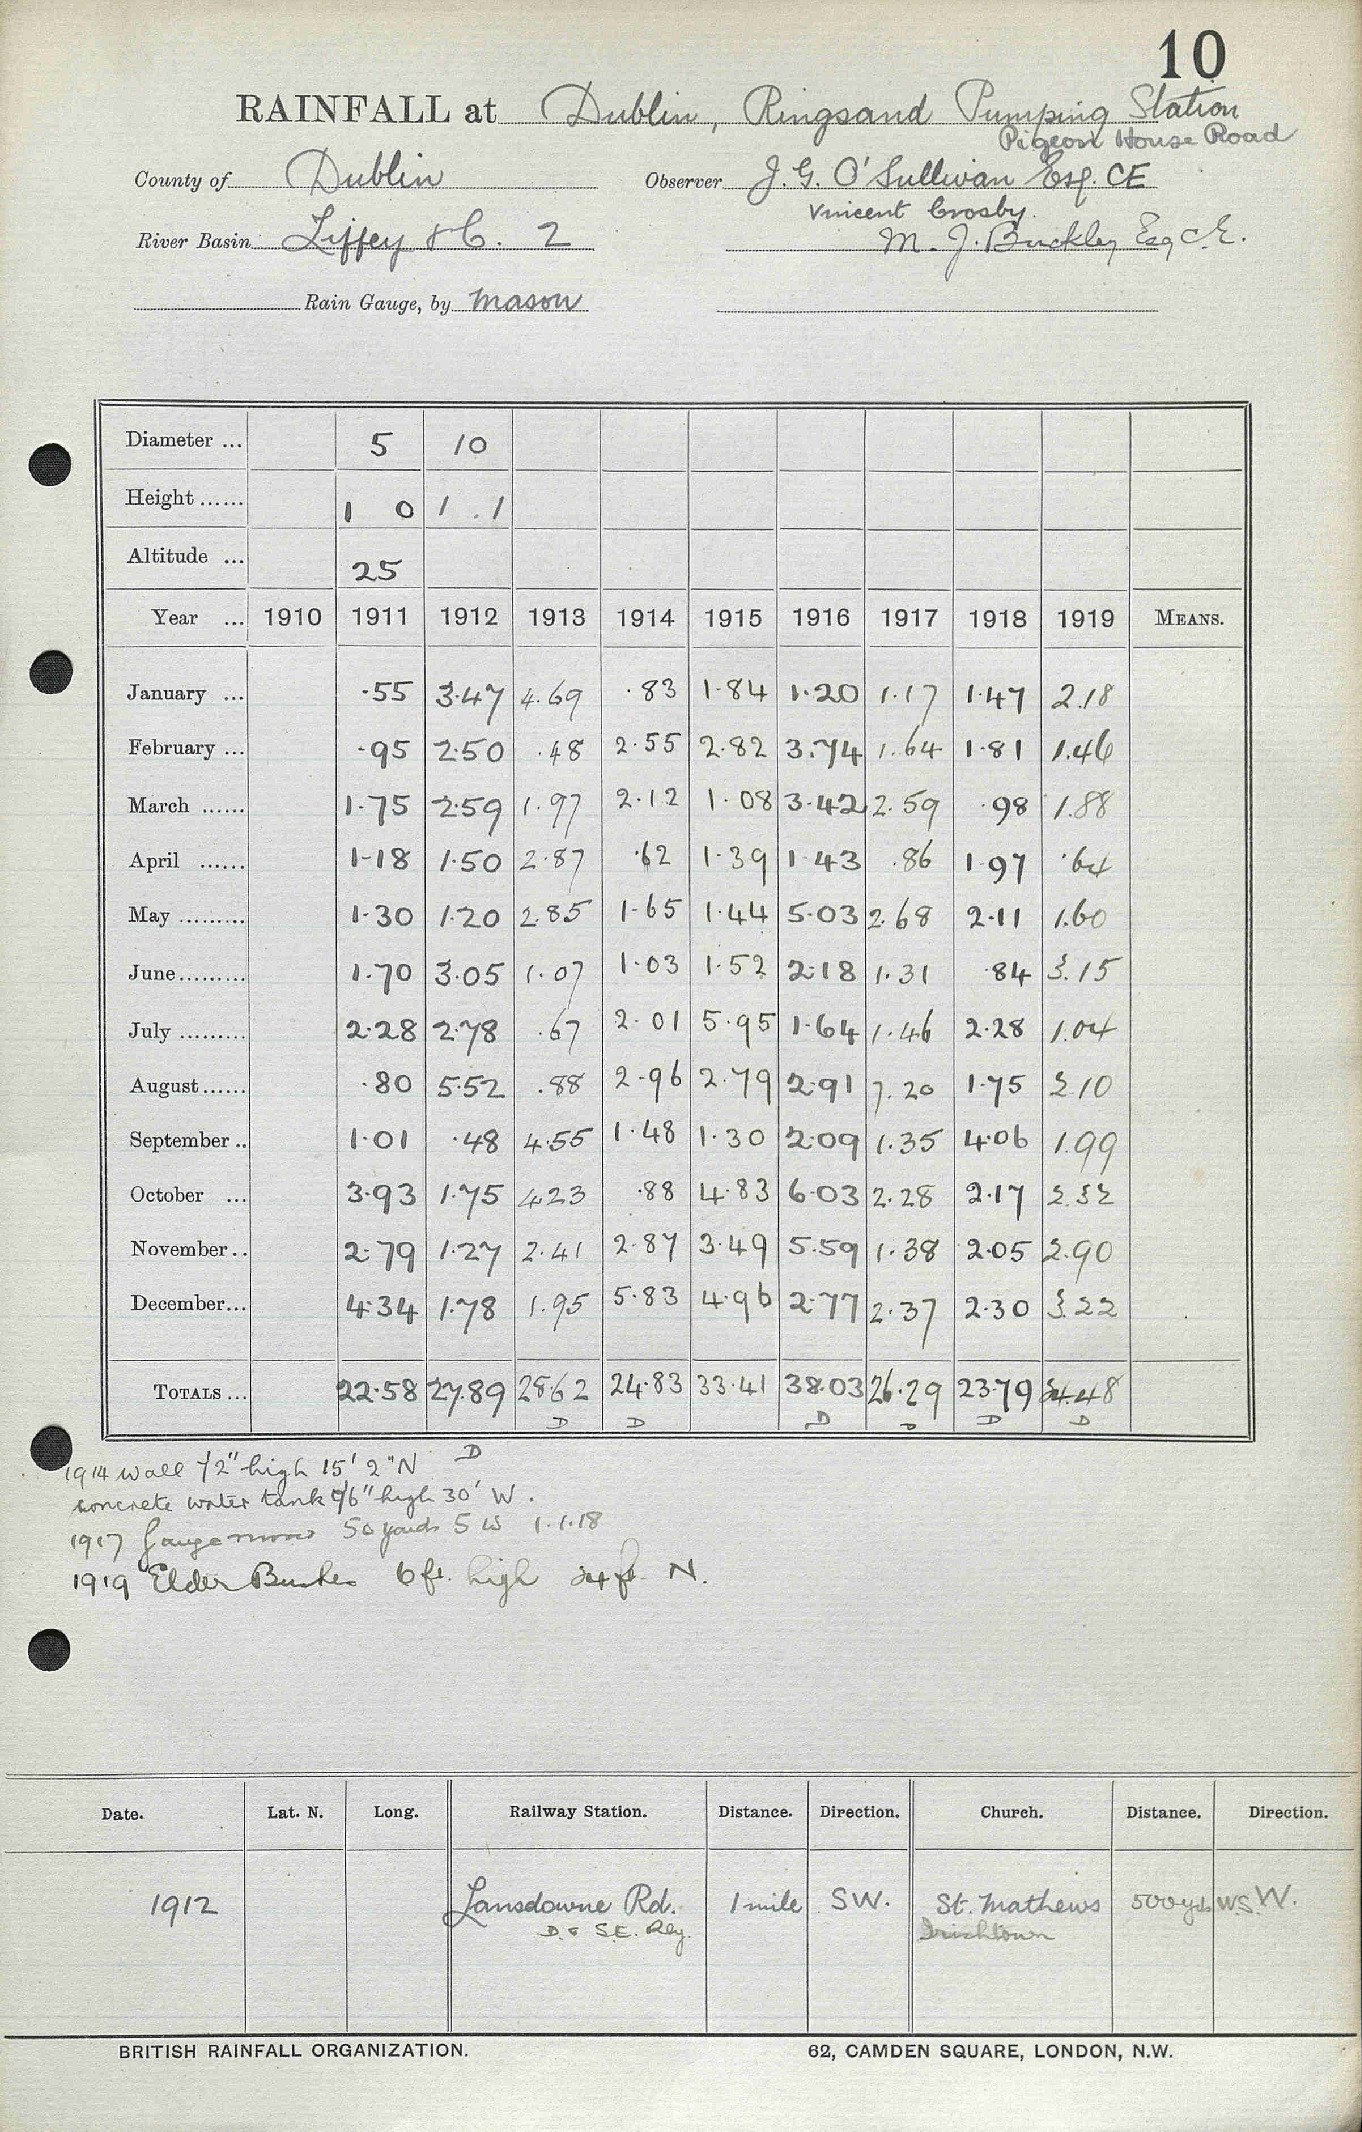 10
RAINFALL at Dublin, Ringsand Pumping Station
Pigeon House Road
County of Dublin Observer J. G. O'Sullivan Esq. CE
Vincent Crosby.
River Basin Liffey &c. 2 M. J. Buckley Esq C.E.
Rain Gauge, by Mason
Diameter ... 5 10
Height ...... 1 0 1 .1
Altitude ... 25
Year ... 1910 1911 1912 1913 1914 1915 1916 1917 1918 1919 MEANS.
January ... .55 3.47 4.69 .83 1.84 1.20 1.17 1.47 2.18
February ... .95 2.50 .48 2.55 2.82 3.74 1.64 1.81 1.46
March ...... 1.75 2.59 1.97 2.12 1.08 3.42 2.59 .98 1.88
April ...... 1.18 1.50 2.87 .62 1.39 1.43 .86 1.97 .64
May ......... 1.30 1.20 2.85 1.65 1.44 5.03 2.68 2.11 1.60
June......... 1.70 3.05 1.07 1.03 1.52 2.18 1.31 .84 3.15
July ......... 2.28 2.78 .67 2.01 5.95 1.64 1.46 2.28 1.04
August...... .80 5.52 .88 2.96 2.79 2.91 7.20 1.75 2.10
September .. 1.01 .48 4.55 1.48 1.30 2.09 1.35 4.06 1.99
October ... 3.93 1.75 4.23 .88 4.83 6.03 2.28 2.17 2.32
November .. 2.79 1.27 2.41 2.87 3.49 5.59 1.38 2.05 2.90
December... 4.34 1.78 1.95 5.83 4.96 2.77 2.37 2.30 3.22
TOTALS ... 22.58 27.89 28.62 24.83 33.41 38.03 26.29 23.79 24.48
D D D D D D
D
1914 wall 1/2" high 15' 2" N
concrete water tank 9/6" high 30' W.
1917 Gauge moved 50 yards S W 1.1.18
1919 Elder Bushes 6 ft. high 24 ft. N.
Date. Lat. N. Long. Railway Station. Distance. Direction. Church. Distance. Direction.
1912 Lansdowne Rd. 1 mile SW. St. Mathews 500 yds W.S.W.
D. & S.E. Rly. Irishtown
BRITISH RAINFALL ORGANIZATION. 62, CAMDEN SQUARE, LONDON, N.W.